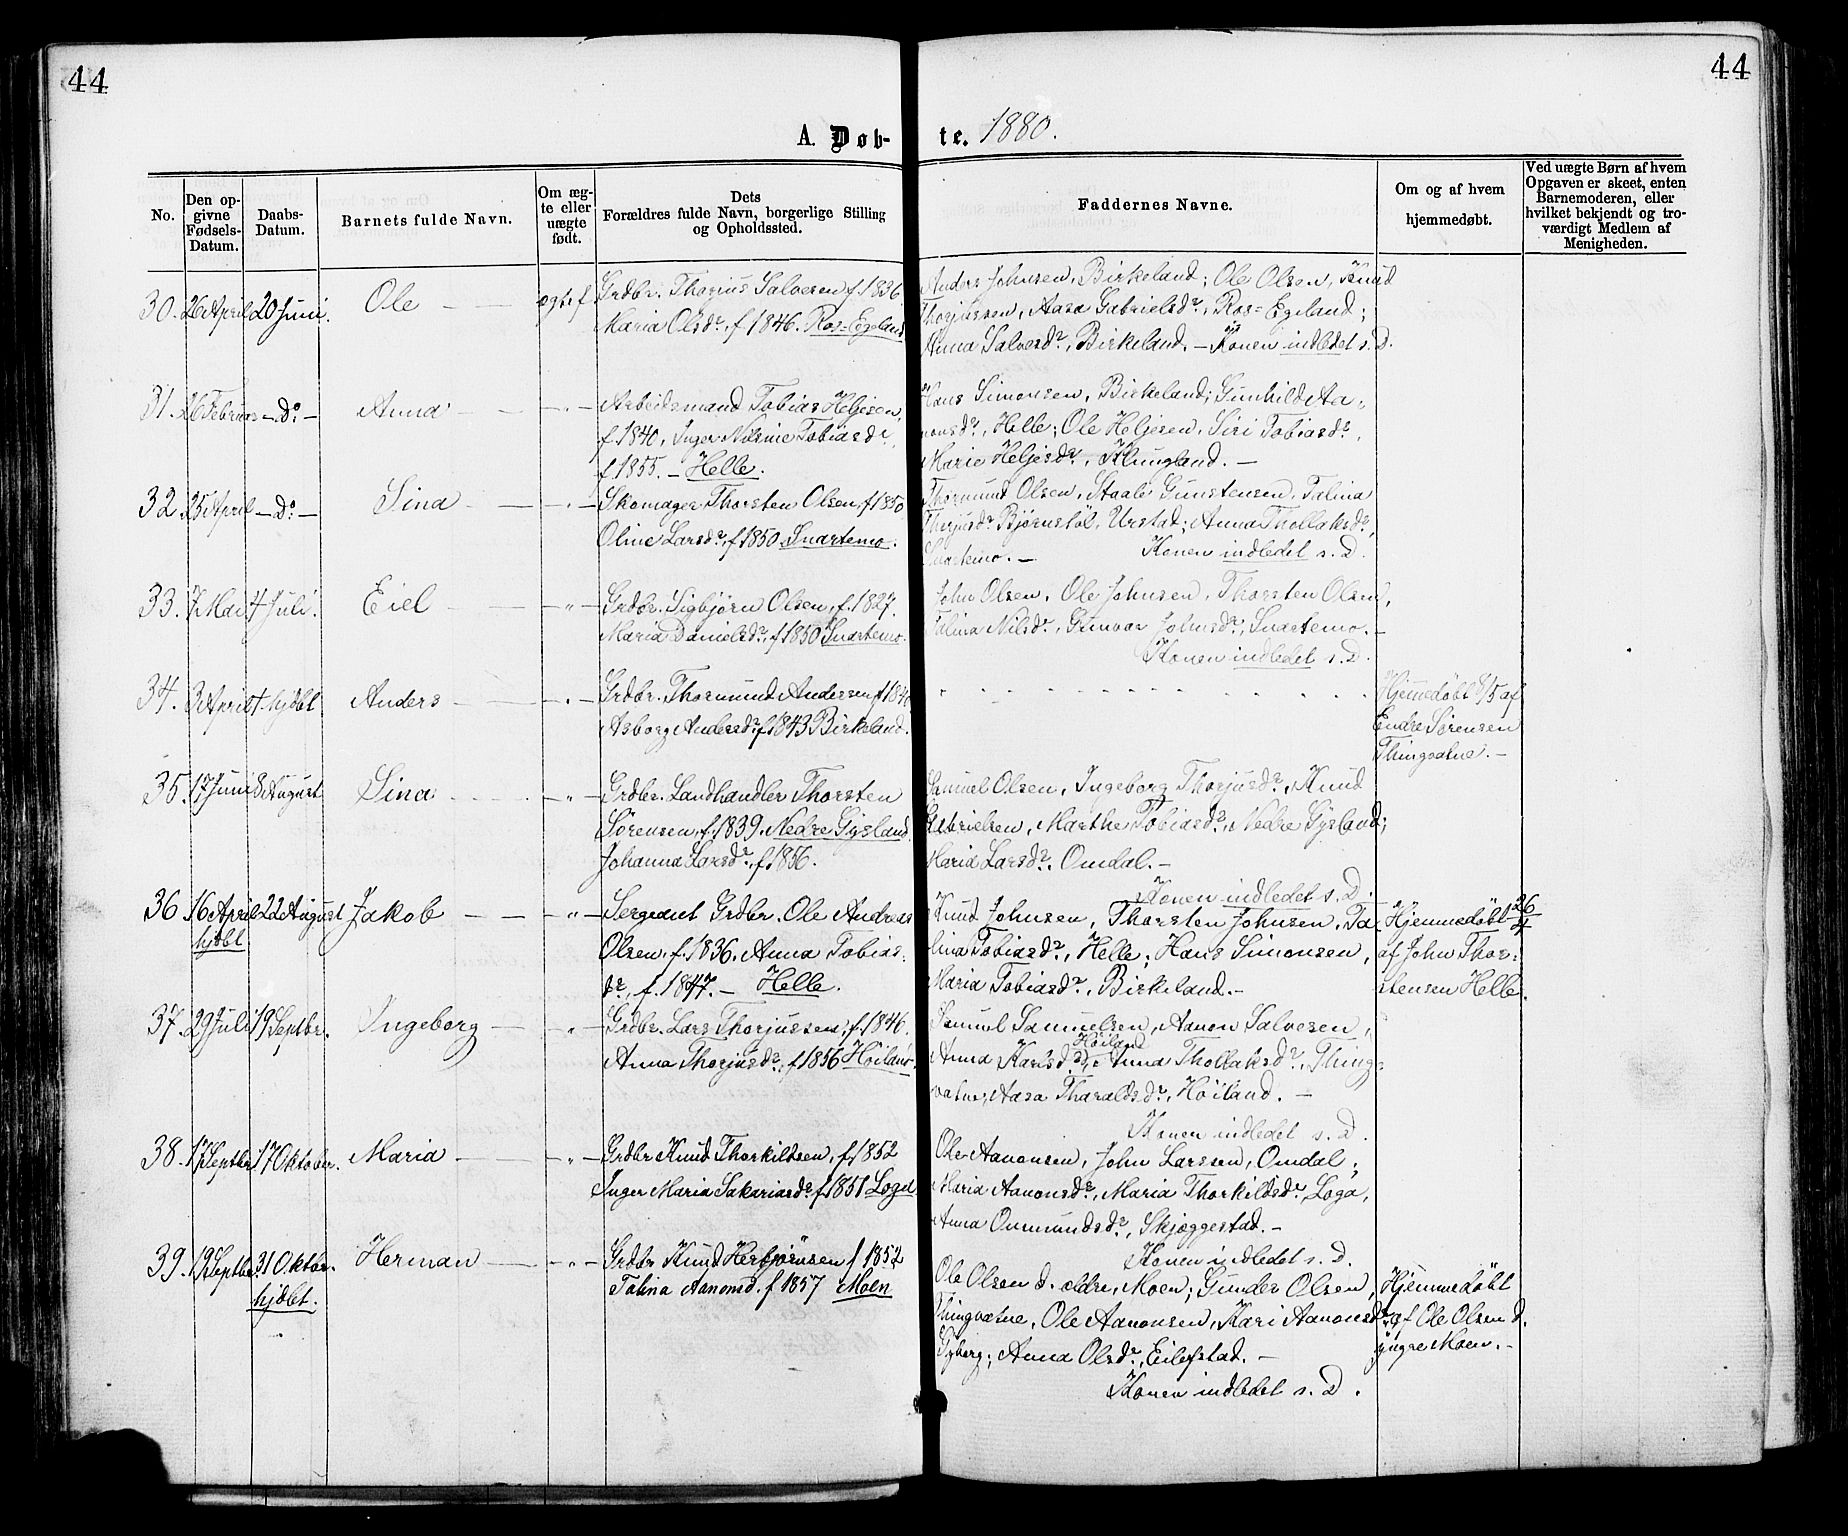 44
44
A. Døb-
te. 1880.
No.
Den op-
givne
Fødsels-
Datum.
Daabs-
Datum.
Barnets fulde Navn.
Om æg-
te eller
uægte
født.
Dets
Forældres fulde Navn, borgerlige Stilling
og Opholdssted.
Faddernes Navne.
Om og af hvem
hjemmedøbt.
Ved uægte Børn af hvem
Opgaven er skeet, enten
Barnemoderen, eller
hvilket bekjendt og tro-
værdigt Medlem af
Menigheden.
30. 26 April 20 Juni. Ole — — ægtef
Grdbr. Thorjus Salvesen f. 1836
Maria Olsdr., f 1846. Ros=Egeland
Anders Johnsen, Birkeland; Ole Olsen, Knud
Thorjussen, Aasa Gabrielsdr., Ros=Egeland;
Anna Salvesdr., Birkeland. — Konen indledet s. D.
31. 26 Februar — Do — Anna — — „ —
Arbeidsmand Tobias Heljesen,
f. 1840, Inger Nilsine Tobiasdr.,
f 1855. — Helle.
Hans Simonsen, Birkeland; Gunhild Aa-
nonsdr., Helle; Ole Heljesen, Siri Tobiasdr.,
Marie Heljesdr., Klungland. —
32. 25 April — Do — Sina — — „ —
Skomager Thorsten Olsen, f 1850
Oline Larsdr., f 1850 Snartemo.
Thormund Olsen, Staale Gunstensen, Talina
Thorjusdr. Bjørnstøl, Urstad; Anna Thollaksdr.,
Snartemo. — Konen indledet s. D.
33. 7 Mai 4 Juli. Eiel — — „ —
Grdbr. Sigbjørn Olsen, f. 1827.
Maria Danielsdr., f 1850 Snartemo.
John Olsen, Ole Johnsen, Thorsten Olsen,
Talina Nilsdr., Gunvor Johnsdr., Snartemo. —
Konen indledet s. D.
34. 3 April hjdbt Anders — — „ —
Grdbr. Thormund Andersen f 1840
Asborg Andersdr. f 1843 Birkeland.
Hjemmedøbt 8/5 af
Endre Sørensen
Thingvatne. —
35. 17 Juni 8 August Sina — — „ —
Grdbr. Landhandler Thorsten
Sørensen, f. 1839, Nedre Gysland
Johanna Larsdr., f 1856.
Samuel Olsen, Ingeborg Thorjusdr., Knud
Gabrielsen, Marthe Tobiasdr., Nedre Gysland;
Maria Larsdr. Omdal. —
Konen indledet s. D.
36 16 April 22 August Jakob — — „ —
hjdbt
Sergeant Grdbr. Ole Andreas
Olsen, f. 1836, Anna Tobias-
dr., f. 1847. — Helle.
Knud Johnsen, Thorsten Johnsen, Ta-
lina Tobiasdr., Helle; Hans Simonsen,
Maria Tobiasdr., Birkeland. —
Hjemmedøbt 26/4
af John Thor-
stensen Helle.
37. 29 Juli 19 Septbr. Ingeborg — „ —
Grdbr. Lars Thorjussen, f. 1846.
Anna Thorjusdr., f 1856 Høiland.
Samuel Samuelsen, Aanon Salvesen,
Høiland
Anna Karlsdr., Anna Thollaksdr., Thing-
vatne, Aasa Tharaldsdr., Høiland. —
Konen indledet s. D.
38. 17 Septbr 17 Oktober. Maria — — „ —
Grdbr Knud Thorkildsen, f. 1852
Inger Maria Sakariasdr. f 1851 Loga
Ole Aanonsen, John Larssen, Omdal;
Maria Aanonsdr., Maria Thorkildsdr. Loga,
Anna Ommundsdr., Skjæggestad. —
Konen indledet s. D.
39. Septbr. 31 Oktbr. Herman — — „ —
hjdbt.
Grdbr Knud Herbjørnsen f 1852
Talina Aanonsd. f 1857 Moen
Ole Olsen d. ældre, Moen; Gunder Olsen,
Thingvatne, Ole Aanonsen, Kari Aanonsdr.,
Gyberg; Anna Olsdr., Eilefstad. —
Konen indledet s. D.
Hjemmedøbt
af Ole Olsen d.
yngre Moen. —